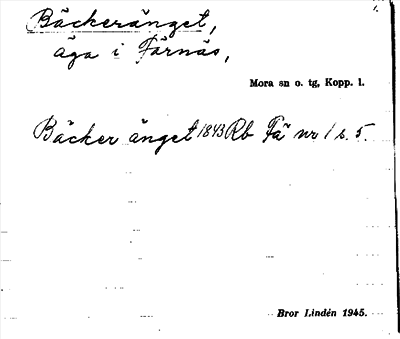 Bäckeränget,
äga i Färnäs,
Mora sn o. tg, Kopp. l.
Bäcker änget 1843 Rb Fä nr 1 s. 5.
Bror Lindén 1945.